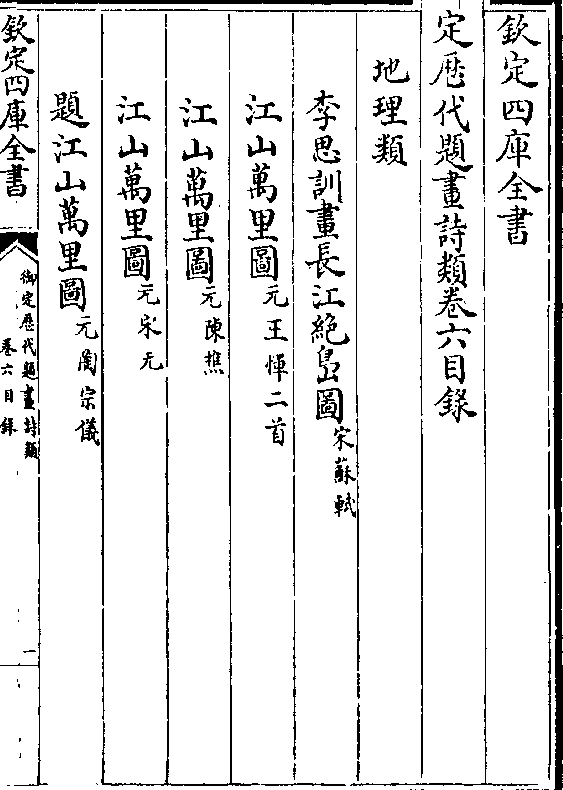 欽定四庫全書
定歴代題畫詩類卷六目錄
地理類
李思訓畫長江絶島圖宋蘇軾
江山萬里圖元王惲二首
江山萬里圖元陳樵
江山萬里圖元宋无
題江山萬里圖元陶宗儀
欽定四庫全書
御定歴代題畫詩類
卷六目錄
一